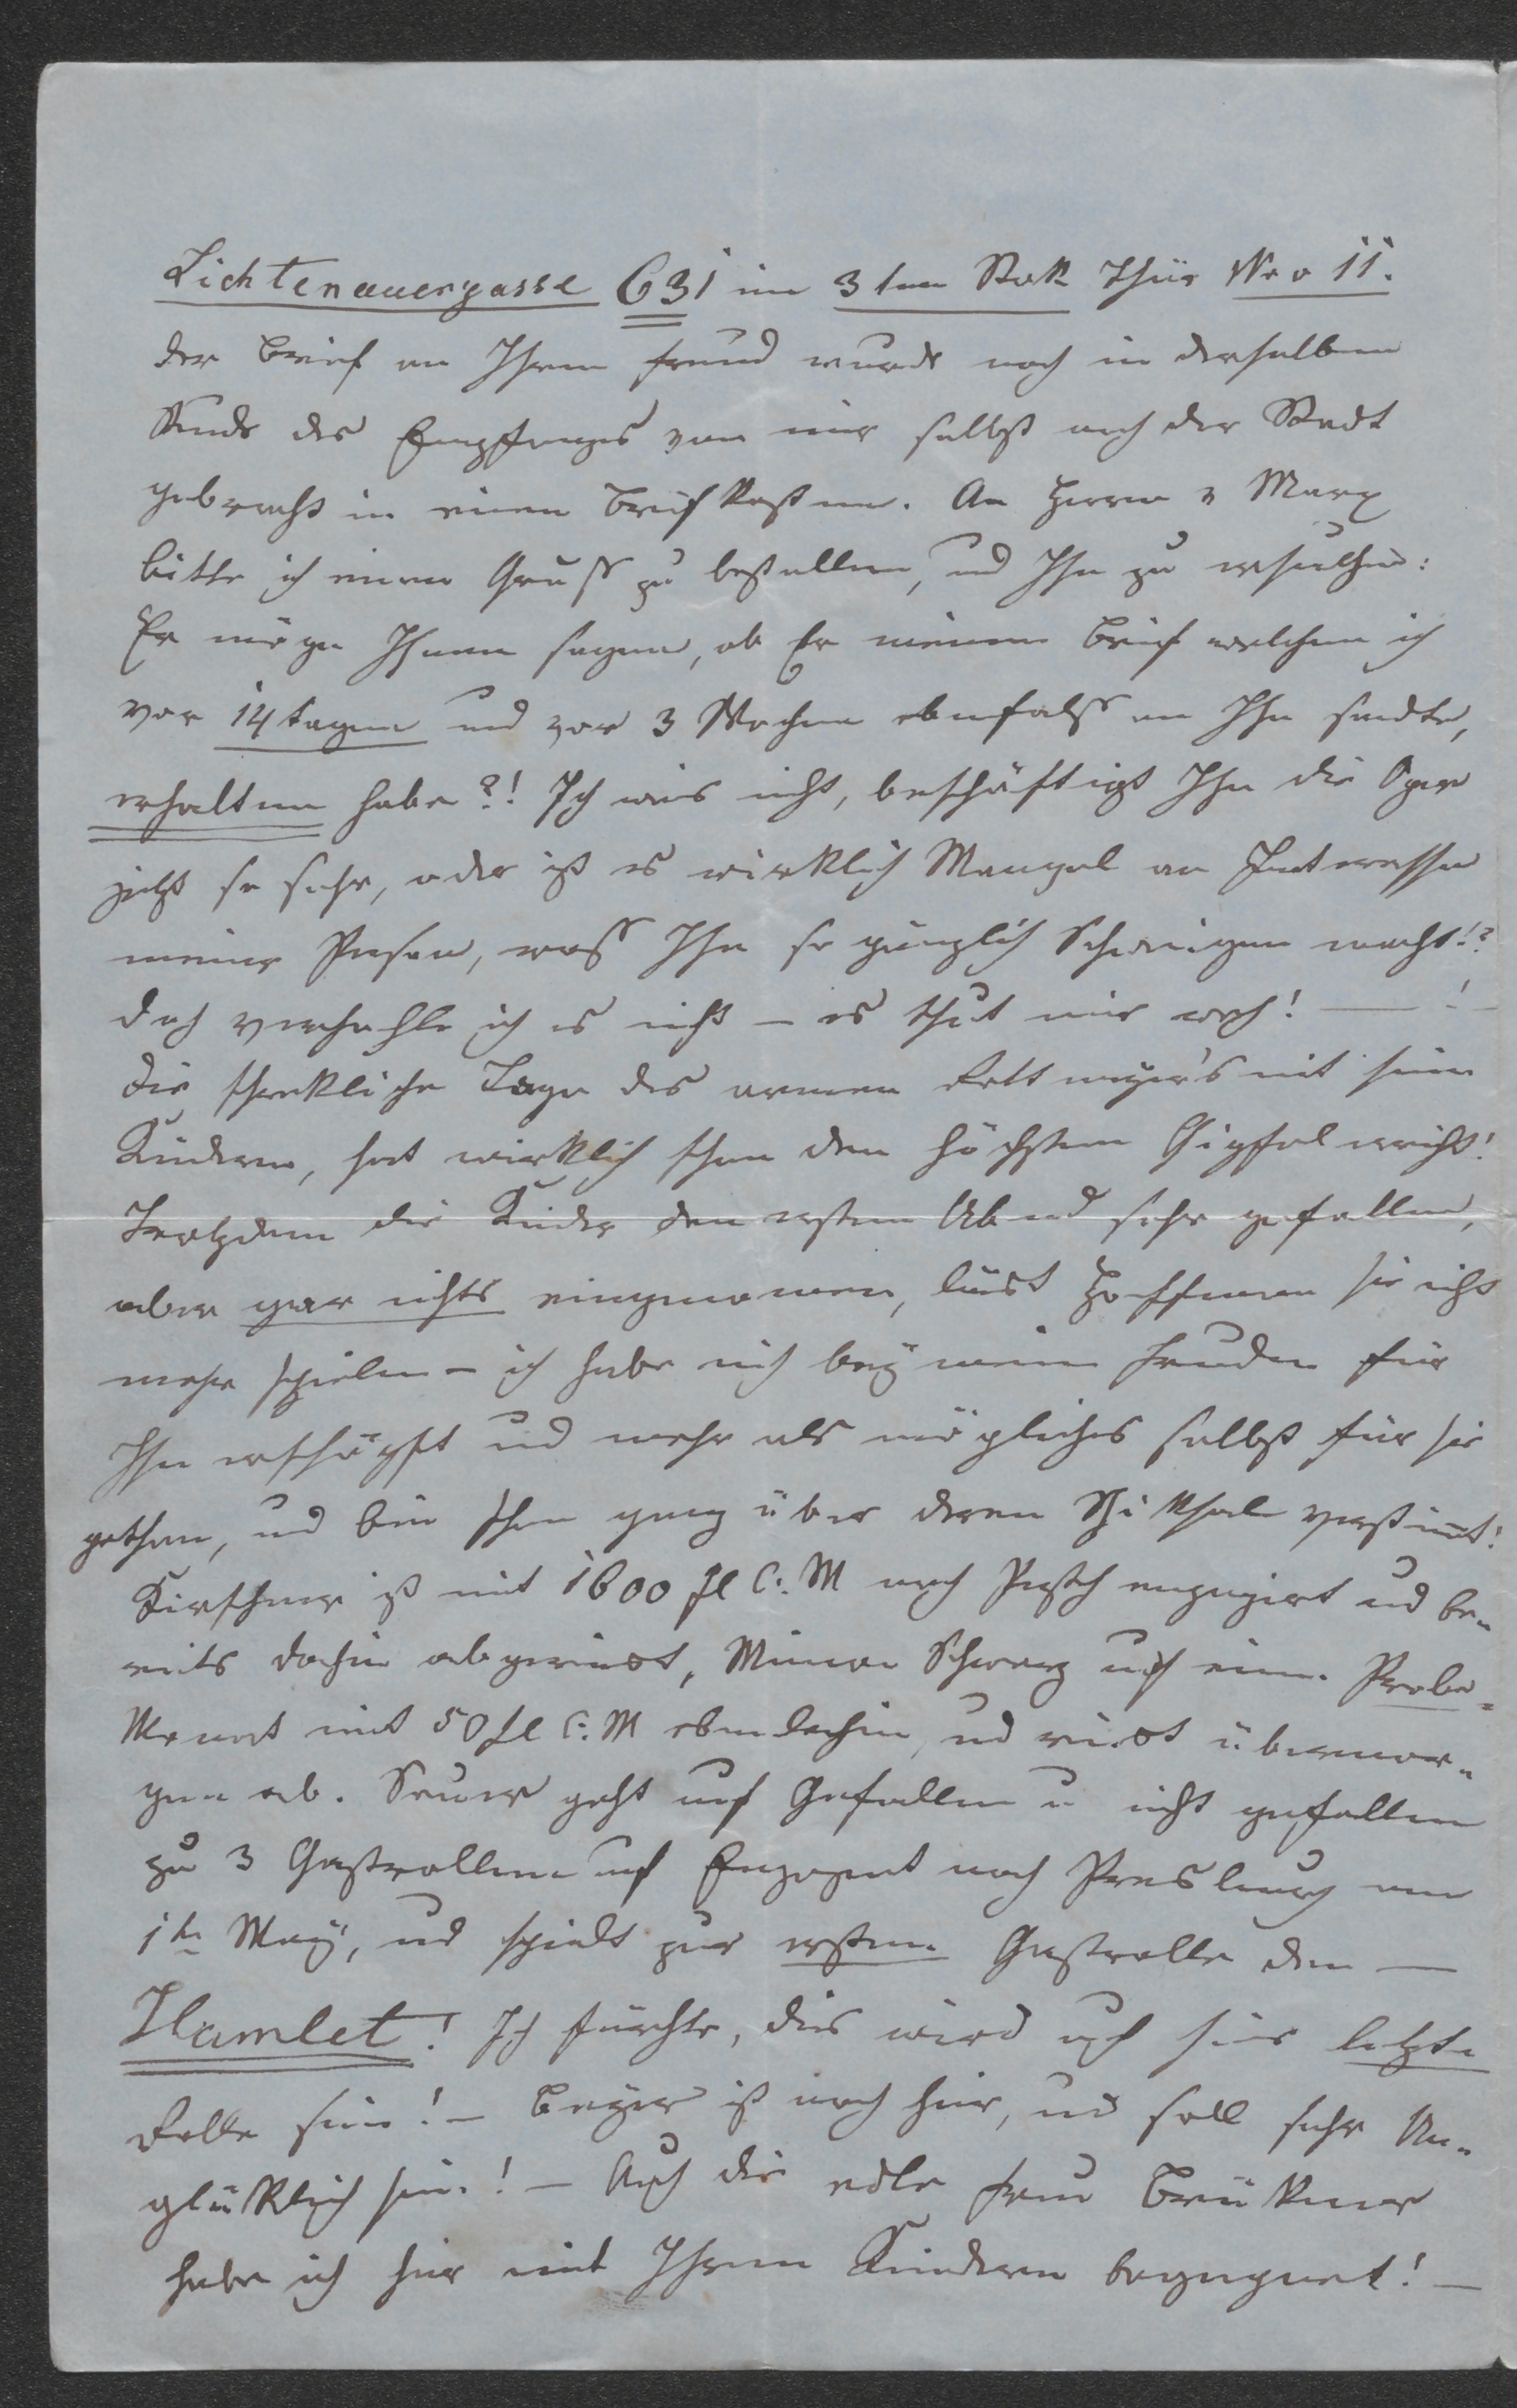 Lichtenauergasse 631 im 3ten Stok Thür Nro 11.
der Brief an Ihren Freund wurde noch in derselben
Stunde des Empfanges von mir selbst nach der Stadt
gebracht in einen Briefkasten. An Herrn v Marx
bitte ich einen Gruss zu bestellen, und Ihn zu ersuchen:
Er möge Ihnen sagen, ob Er meinen Brief welchen ich
vor 14 tagen und vor 3 Wochen ebenfalls an Ihn sandte,
erhalten habe?! Ich weis nicht, beschäftigt Ihn die Oper
jetzt so sehr, oder ist es wirklich Mangel an Interesse
meiner Person, wass Ihn so gänzlich Schweigen macht!?
doch verhehle ich es nicht – es thut mir weh! — !
Die schrekliche Lage des armen Rottmayer's mit seinen
Kindern, hat wirklich schon den höchsten Gipfel erreicht!
Trotzdem die Kinder den ersten Abend sehr gefallen,
aber gar nichts eingenomen, lässt Hoffmann sie nicht
mehr spielen – ich habe mich bey meinen Freunden für
Ihn erschöpft und mehr als mögliches selbst für sie
gethan, und bin schon ganz über deren Schiksal verstimt!
Kirschner ist mit 1600 fl C. M nach Pesth engagirt und be-
reits dahin abgereist, Minna Schwarz auf einen Probe-
Monat mit 50 fl C. M ebendahin, und reist übermor-
gen ab. geht auf Gefallen u nicht gefallen
zu 3 Gastrollen auf Engagment nach Presburg am
1ten May, und spielt zur ersten Gastrolle den —
Hamlet! Ich fürchte, dies wird auch seine letzte
Rolle sein! – Beyer ist noch hier, und soll sehr Un-
glüklich sein! – Auch die edle Frau Brükner
habe ich hier mit Ihren Kindern begegnet! —